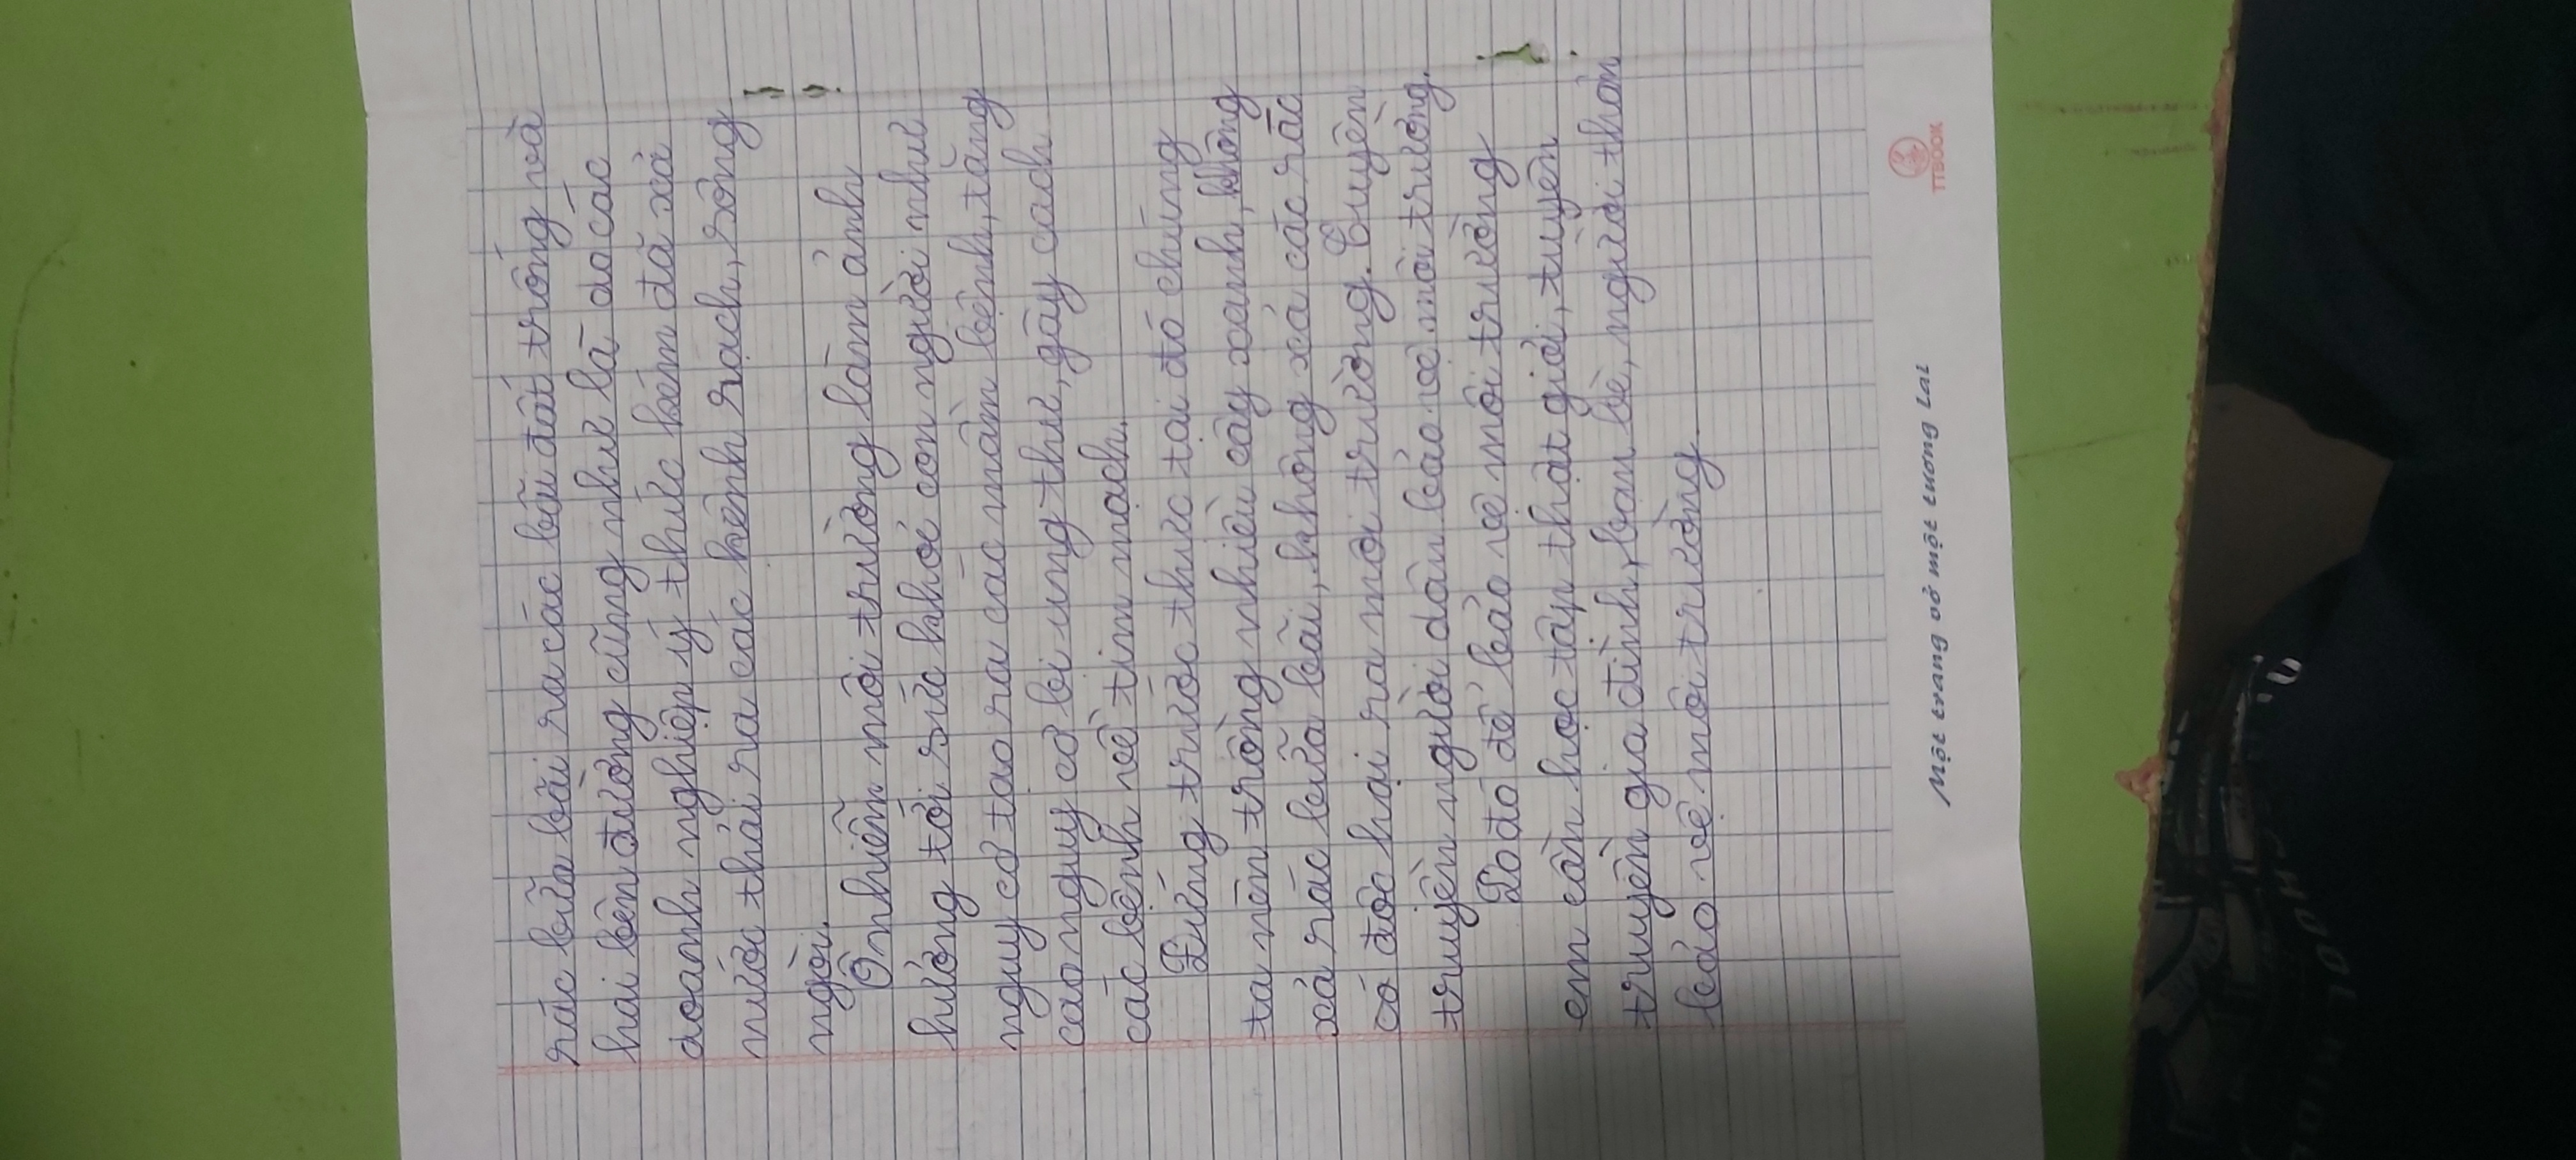 rác bừa bãi ra các bãi đất trống và
hai bên đường cũng như là do các
doanh nghiệp ý thức kém đã xả
nước thải ra các kênh rạch, sông
ngòi.
Ô nhiễm môi trường làm ảnh
hưởng tới sức khoẻ con người như
nguy cơ tạo ra các mầm bệnh, tăng
cao nguy cơ bị ung thư, gây cach
các bệnh về tim mạch.
Đứng trước thực tại đó chúng
ta nên trồng nhiều cây xanh, không
xả rác bừa bãi, không xả các rác
có độc hại ra môi trường. Tuyên
truyền người dân bảo vệ môi trường.
Do đó để bảo vệ môi trường
em cần học tập thật giỏi, tuyên
truyền gia đình, bạn bè, người thân
bảo vệ môi trường.
Một trang vở một tương lai
TTBOOK